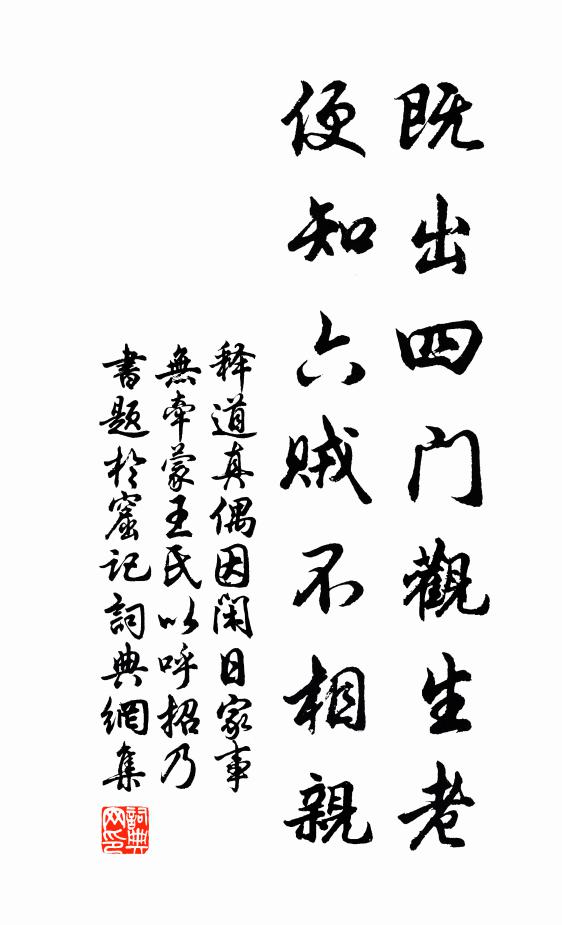 既出四门觀生老
便知六贼不相親
释道真偶因闲日家事
無牽蒙王氏以呼招乃
書题於窟记詞典網集
詞典网印